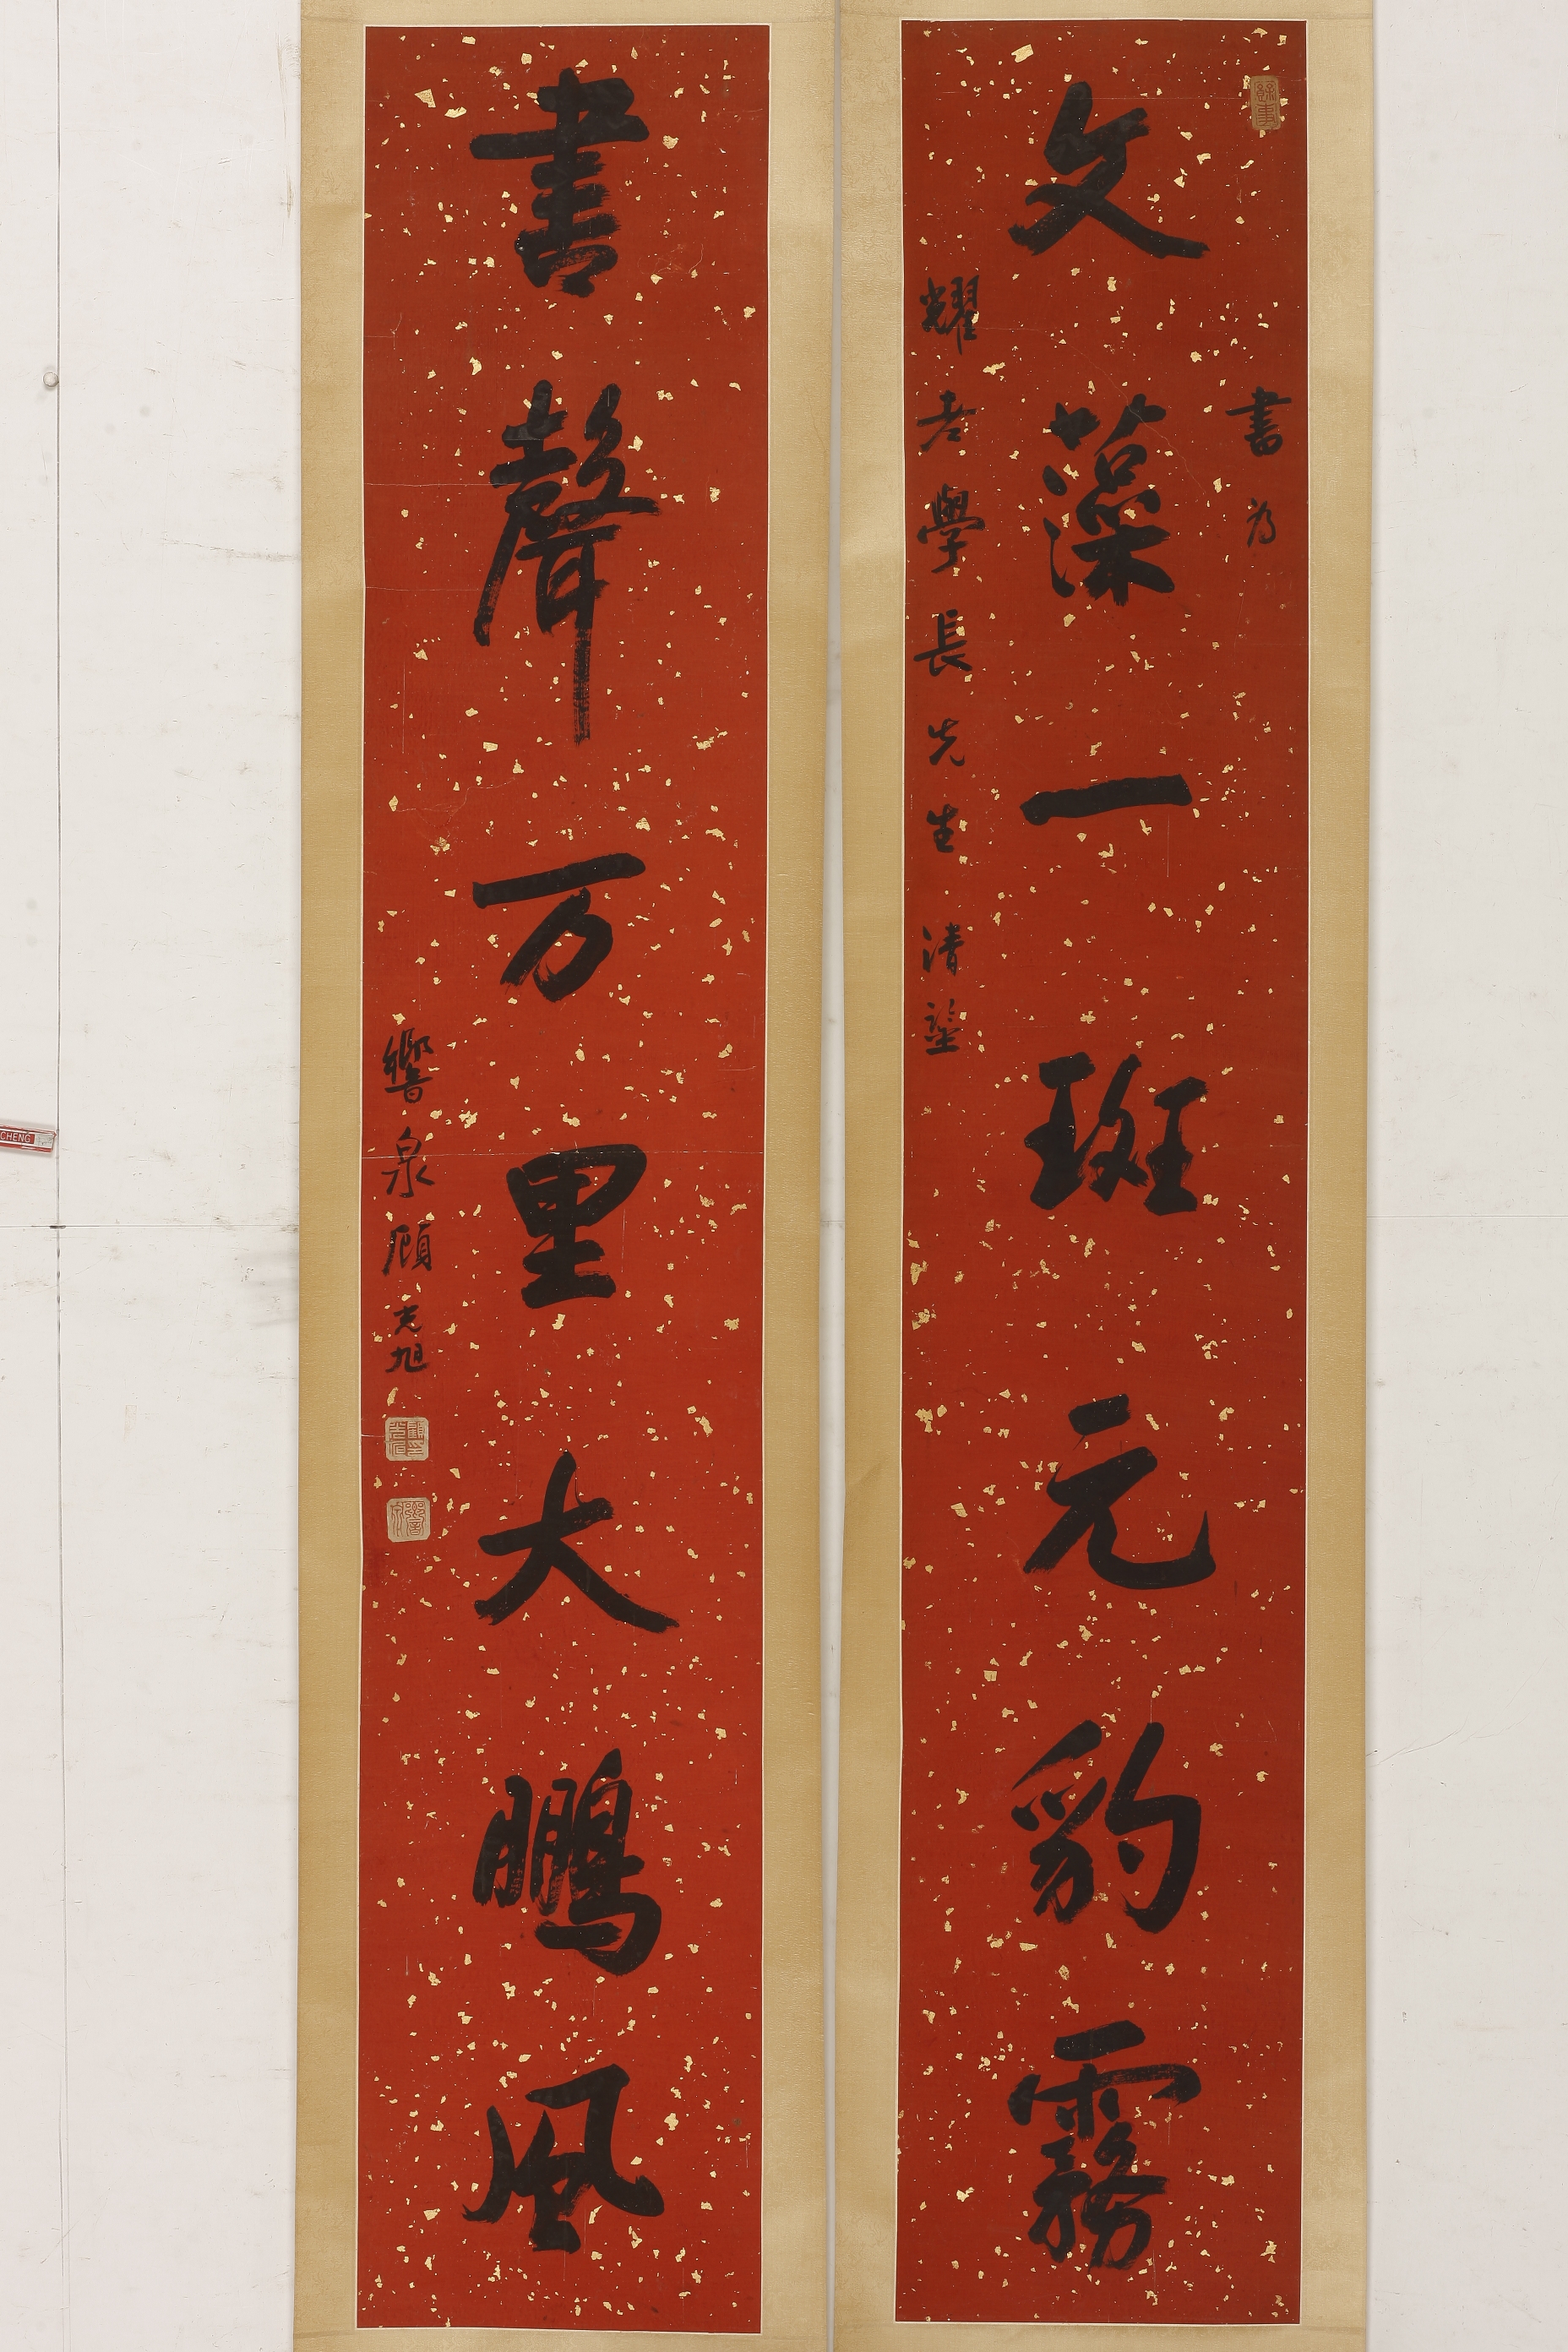 書為
文藻一斑元豹霧
耀老學長先生清鑒
書聲万里大鵬風
響泉顧光旭
CHENG